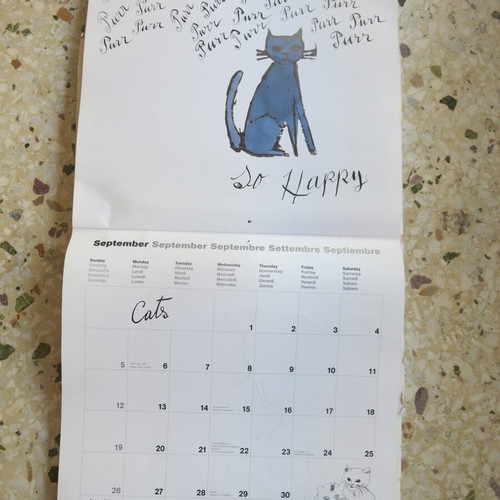 Purr Purr Purr Purr Purr Purr Purr Purr
Purr Purr Purr Purr Purr Purr
Purr Purr Purr
So Happy
September September Septembre Settembre Septiembre
Sunday Monday Tuesday Wednesday Thursday Friday Saturday
Sonntag Montag Dienstag Mittwoch Donnerstag Freitag Samstag
Dimanche Lundi Mardi Mercredi Jeudi Vendredi Samedi
Domenica Lunedì Martedì Mercoledì Giovedì Venerdì Sabato
Domingo Lunes Martes Miércoles Jueves Viernes Sábado
Cats
1 2 3 4
5 6 7 8 9 10 11
12 13 14 15 16 17 18
19 20 21 22 23 24 25
26 27 28 29 30